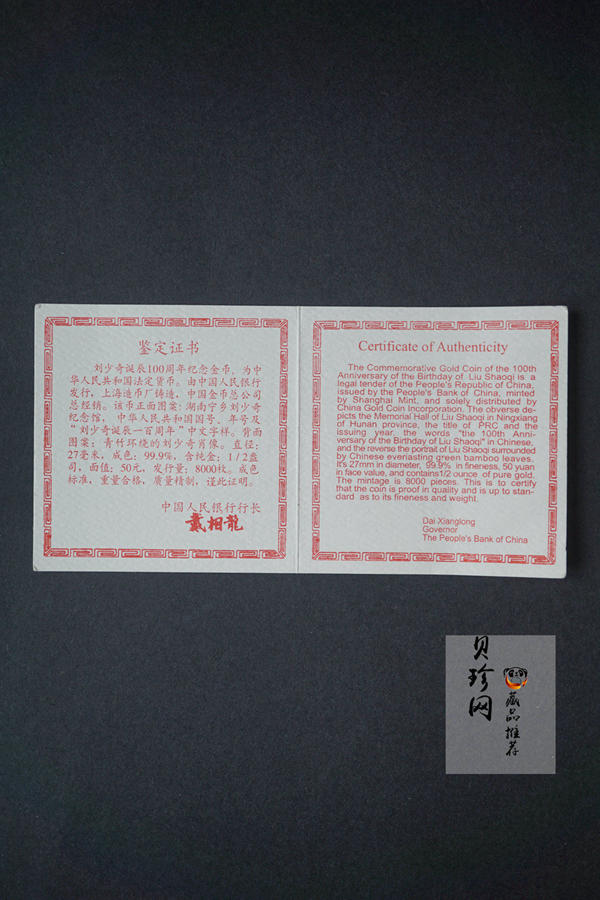 鉴定证书
刘少奇诞辰100周年纪念金币，为中
华人民共和国法定货币。由中国人民银行
发行，上海造币厂铸造，中国金币总公司
总经销。该币正面图案：湖南宁乡刘少奇
纪念馆，中华人民共和国国号、年号及
“刘少奇诞辰一百周年”中文字样。背面
图案：青竹环绕的刘少奇肖像。直径：
27毫米，成色：99.9%，含纯金：1/2盎
司，面值：50元，发行量：8000枚。成色
标准，重量合格，质量精制，谨此证明。
中国人民银行行长
戴相龍
Certificate of Authenticity
The Commemorative Gold Coin of the 100th
Anniversary of the Birthday of Liu Shaoqi is a
legal tender of the People's Republic of China,
issued by the People's Bank of China, minted
by Shanghai Mint, and solely distributed by
China Gold Coin Incorporation. The obverse de-
picts the Memorial Hall of Liu Shaoqi in Ningxiang
of Hunan province, the title of PRC and the
issuing year, the words "the 100th Anni-
versary of the Birthday of Liu Shaoqi" in Chinese,
and the reverse the portrait of Liu Shaoqi surrounded
by Chinese everlasting green bamboo leaves.
It's 27mm in diameter, 99.9% in fineness, 50 yuan
in face value, and contains1/2 ounce of pure gold.
The mintage is 8000 pieces. This is to certify
that the coin is proof in quality and is up to stan-
dard as to its fineness and weight.
Dai Xianglong
Governor
The People's Bank of China
贝珍网
藏品推荐